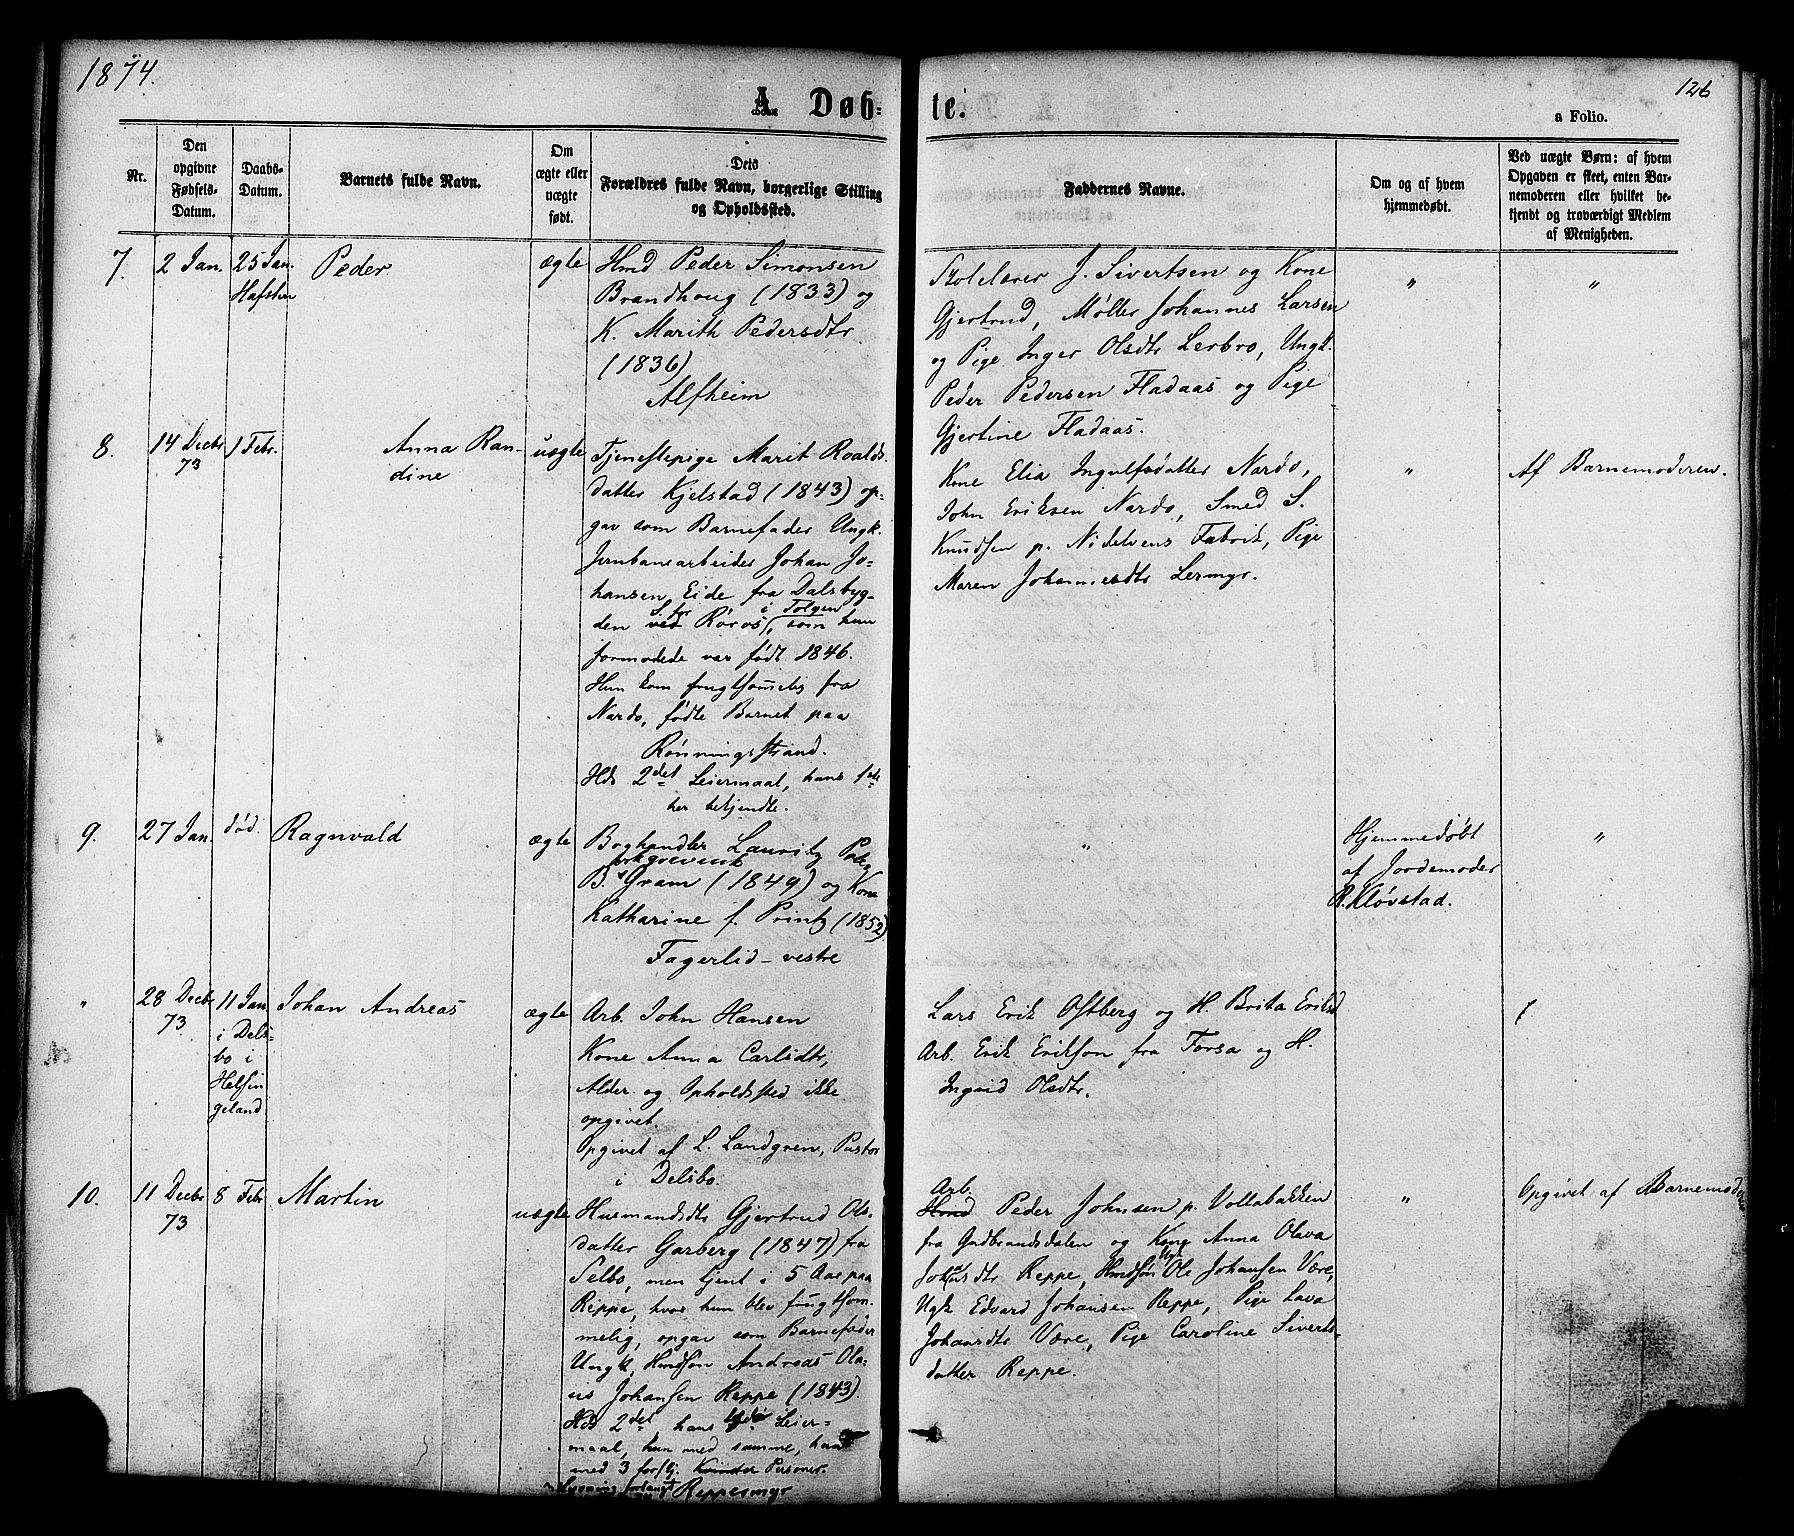 1874.
126
A. Døb-
te.
a Folio.
Nr.
Den
opgivne
Fødsels-
Datum.
Daabs-
Datum.
Barnets fulde Navn.
Om
ægte eller
uægte
født.
Dets
Forældres fulde Navn, borgerlige Stilling
og Opholdssted.
Faddernes Navne.
Om og af hvem
hjemmedøbt.
Ved uægte Børn: af hvem
Opgaven er skeet, enten Bar-
nemoderen eller hvilket be-
kjendt og troværdigt Medlem
af Menigheden.
7.
2 Jan.
25 Jan.
Peder
ægte
Hmd Peder Simonsen
Brandhoug (1833) og
K. Marith Pedersdtr
(1836)
Alfheim
Skolelærer J. Sivertsen og Kone
Gjertrud, Møller Johannes Larsen
og Pige Inger Olsdtr Lerbro, Ungk.
Peder Pedersen Fladaas og Pige
Gjertine Fladaas.
"
"
8.
14 Decbr
73
1 Febr.
Anna Ran-
dine
uægte
Tjenestepige Marit Roalds-
datter Kjelstad (1843) op-
gav som Barnefader Ungk.
Jernbanearbeider Johan Jo-
hansen Eide fra Dalsbyg-
S. for i Tolgen
den ved Röros, som hun
formodede var født 1846.
Hun kom frugtsommelig fra
Nardo, fødte Barnet paa
Rönningsstrand.
Hds 2det Leiermaal, hans 1ste
her bekjendte.
Kone Elia Ingulfsdatter Nardo,
John Eriksen Nardo, Smed S.
Knudsen p. Nidelvens Fabrik, Pige
Maren Johannesdtr Lermyr.
"
Af Barnemoderen.
9.
27 Jan.
død.
Ragnvald
ægte
Boghandler Lauritz
B. Gram (1849) og Kone
Katharine f. Printz (1852)
Fagerlid - vestre
"
Hjemmedøbt
af Jordemoder
R. Kløvstad.
"
"
28 Decbr
73
11 Jan.
i Dels-
bo i
Helsin
geland
Johan Andreas
ægte
Arb. John Hansen
Kone Anna Carlsdtr,
Alder og Opholdssted ikke
opgivet.
Opgivet af L. Landgren, Pastor
i Delsbo.
Lars Erik Østberg og H. Brita Eriksd
Arb. Erik Erikson fra Forsa og H.
Ingrid Olsdtr.
10.
11 Decbr
73
8 Febr.
Martin
uægte
Husmandsdtr Gjertrud Ols-
datter Garberg (1847) fra
Selbo, men tjent i 5 Aar paa
Reppe, hvor hun blev frugtsom-
melig, opgav som Barnefader
Ungk, Hmdsøn Andreas Ola-
us Johansen Reppe (1843).
Hds 2det, hans Leier-
maal, hun med samme, han
med 3 forskj. Kvinder Personer.
Reppesmyr
Arb.
Hmd Peder Johnsen p. Vollabakken
fra Gudbrandsdalen og Kone Anna Olava
Johansdtr Reppe, Hmdsøn Ole Johansen Være,
Ugk Edvard Johansen Reppe, Pige Lava
Johansdtr Være, Pige Caroline Siverts-
datter Reppe.
"
Opgivet af Barnemoderen